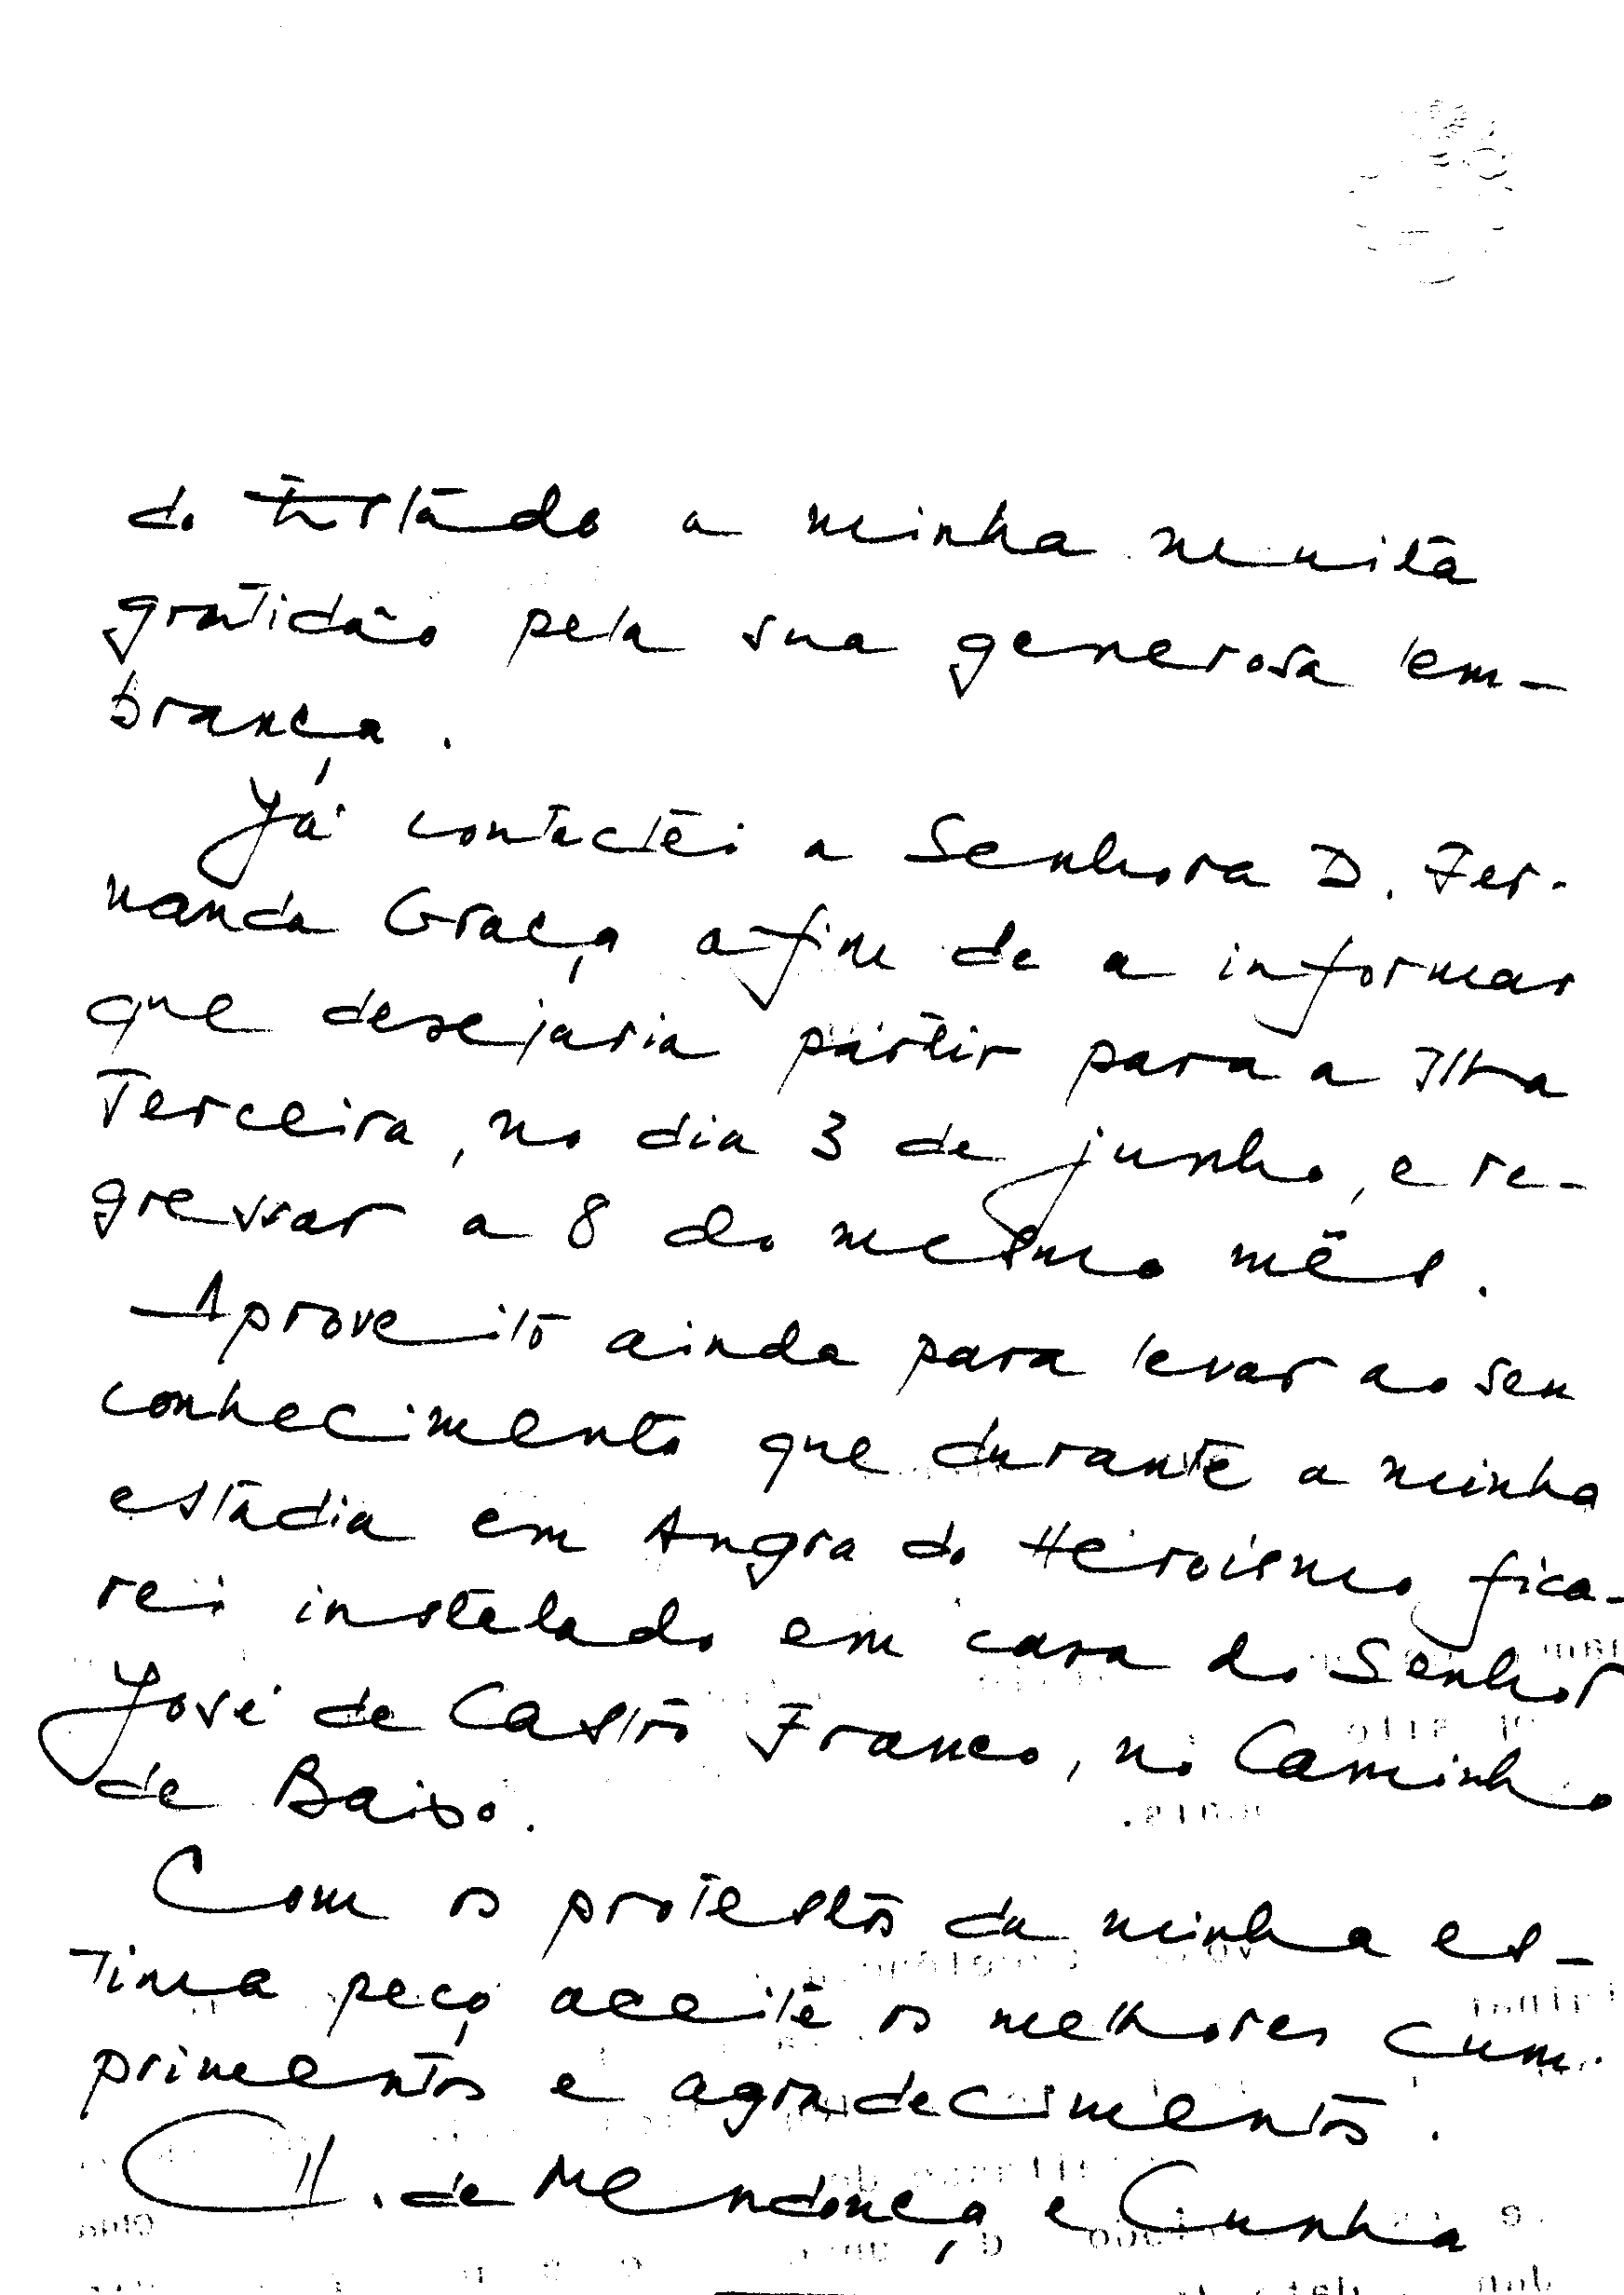 do Estado a minha muita
gratidão pela sua generosa lem-
brança.
Já contactei a Senhora D. Fer-
nanda Graça afim de a informar
que desejaria partir para a Ilha
Terceira, no dia 3 de junho, e re-
gressar a 8 do mesmo mês.
Aproveito ainda para levar ao seu
conhecimento que durante a minha
estadia em Angra do Heroísmo fica-
rei instalado em casa do Senhor
José de Castro Franco, no Caminho
de Baixo.
Com os protestos da minha es-
tima peço aceite os melhores cum-
primentos e agradecimentos.
de Mendonça e Cunha